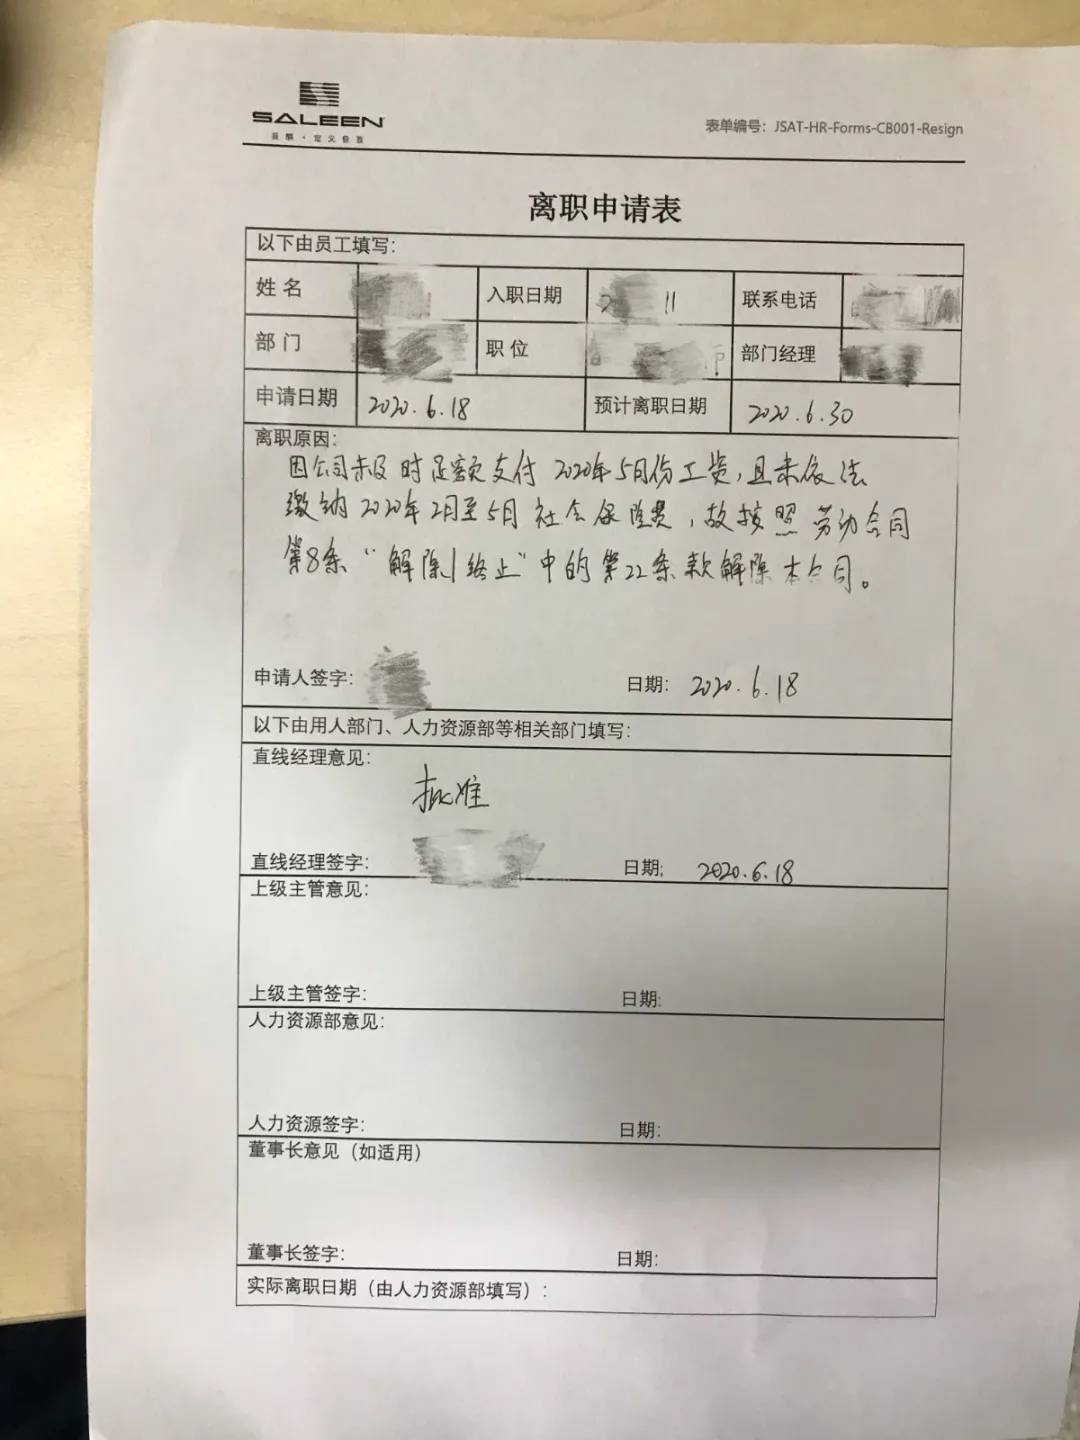 SALEEN
表单编号：JSAT-HR-Forms-CB001-Resign
离职申请表
以下由员工填写：
姓 名 入职日期 11 联系电话
部 门 职 位 部门经理
申请日期 2020.6.18 预计离职日期 2020.6.30
离职原因：
因公司未及时足额支付 2020年5月份工资，且未依法
缴纳2020年2月至5月社会保险费，故按照劳动合同
第8条“解除/终止”中的第22条款解除本合同。
申请人签字： 日期： 2020.6.18
以下由用人部门、人力资源部等相关部门填写：
直线经理意见：
批准
直线经理签字： 日期; 2020.6.18
上级主管意见：
上级主管签字： 日期:
人力资源部意见：
人力资源签字： 日期:
董事长意见（如适用）
董事长签字： 日期:
实际离职日期（由人力资源部填写）：